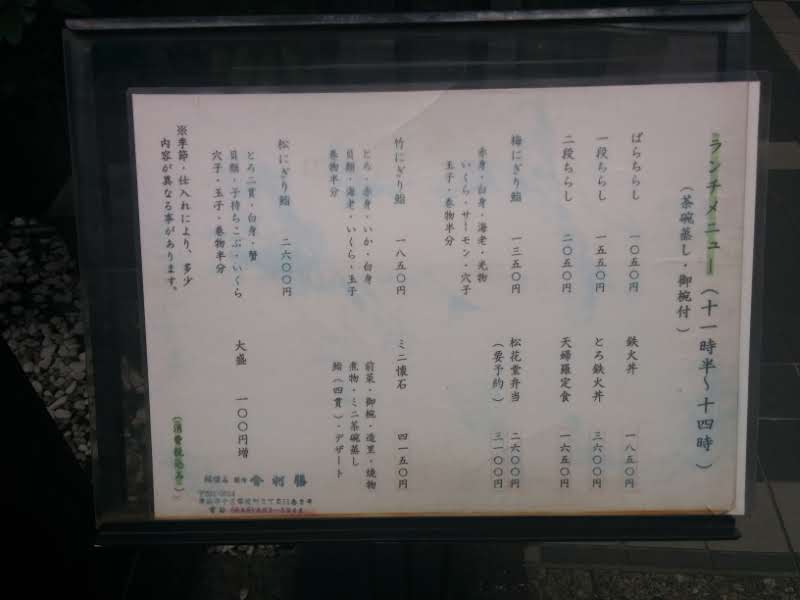 ランチメニュー（十一時半〜十四時）
（茶碗蒸し・御椀付）
ばらちらし 一〇五〇円
一段ちらし 一五五〇円
二段ちらし 二〇五〇円
梅にぎり鮨 一三五〇円
赤身・白身・海老・光物
いくら・サーモン・穴子
玉子・巻物半分
竹にぎり鮨 一八五〇円
とろ・赤身・いか・白身
貝類・海老・いくら・玉子
巻物半分
松にぎり鮨 二六〇〇円
とろ二貫・白身・蟹
貝類・子持ちこぶ・いくら
穴子・玉子・巻物半分
※季節・仕入れにより、多少
内容が異なる事があります。
鉄火丼 一八五〇円
とろ鉄火丼 三六〇〇円
天婦羅定食 一六五〇円
松花堂弁当 二六〇〇円
（要予約） 三一〇〇円
ミニ懐石 四一五〇円
前菜・御椀・造里・焼物
煮物・ミニ茶碗蒸し
鮨（四貫）・デザート
大盛 一〇〇円増
（消費税込み）